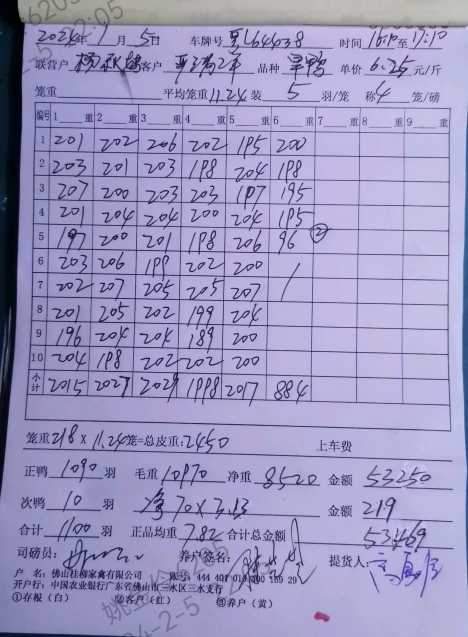 2024年 月 5日 车牌号 黑L64638 时间 16:10至17:10
联营户 杨 客户 品种 旱鸭 单价 6.25 元/斤
笼重 平均笼重 11.24 装 5 羽/笼 称 4 笼/磅
编号 1 重 2 重 3 重 4 重 5 重 6 重 7 重 8 重 9 重
1 201 202 206 202 195 200
2 203 201 203 198 204 198
3 207 200 203 203 197 195
4 201 204 204 200 204 195
5 197 200 201 198 206 96 ②
6 203 206 199 202 200 /
7 202 207 205 205 207
8 201 205 202 199 204
9 196 204 204 189 200
10 204 198 202 202 200
小计 2015 2027 2029 1998 2017 884
笼重 218 × 11.24 笼=总皮重: 2450 上车费
正鸭 1090 羽 毛重 10970 净重 8520 金额 53250
次鸭 10 羽 净70×3.13 金额 219
合计 1100 羽 正品均重 7.82 合计总金额 53469
司磅员: 养户签名: 提货人:
户 名: 佛山桂柳家禽有限公司 账号: 444
开户行: 中国农业银行广东省佛山市三水区三水支行
①存根(白) ②客户(红) ③养户(黄)